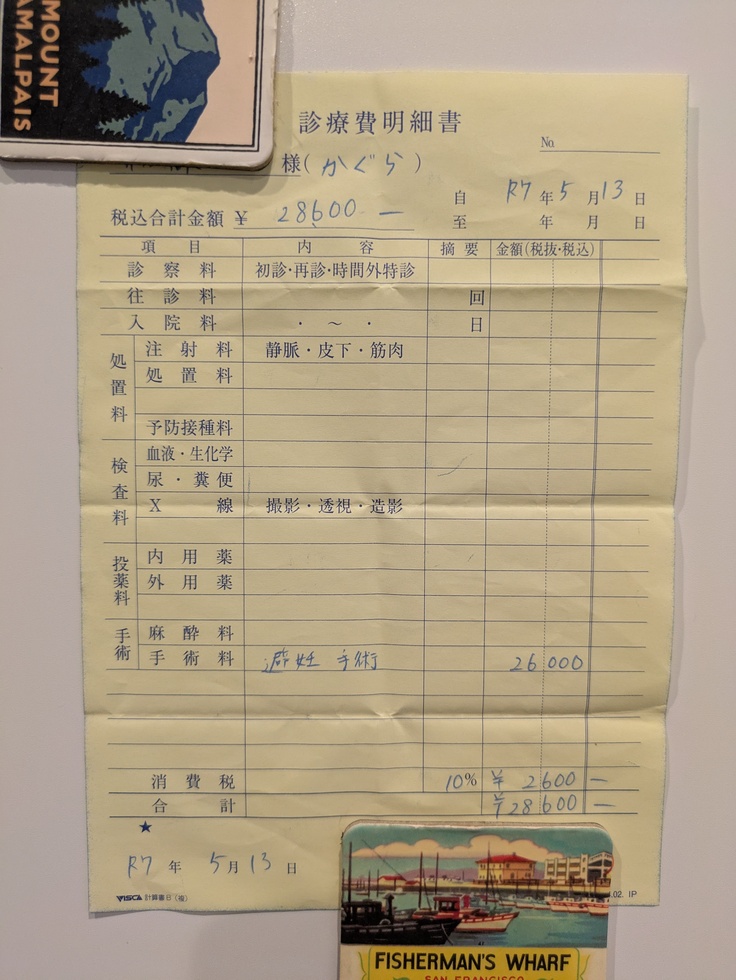 MOUNT
AMALPAIS
診療費明細書
No.
様(かぐら)
自 R7年5月13日
税込合計金額 ¥ 28600 —
至 年 月 日
項目 内容 摘要 金額(税抜・税込)
診察料 初診・再診・時間外特診
往診料 回
入院料 ・ 〜 ・ 日
処置料
注射料 静脈・皮下・筋肉
処置料
予防接種料
検査料
血液・生化学
尿・糞便
X線 撮影・透視・造影
投薬料
内用薬
外用薬
手術
麻酔料
手術料 避妊 手術 26000
消費税 10% ¥ 2600 —
合計 ¥28600 —
★
R7年 5月13日
VISCA 計算書B(複)
.02. IP
FISHERMAN'S WHARF
SAN FRANCISCO